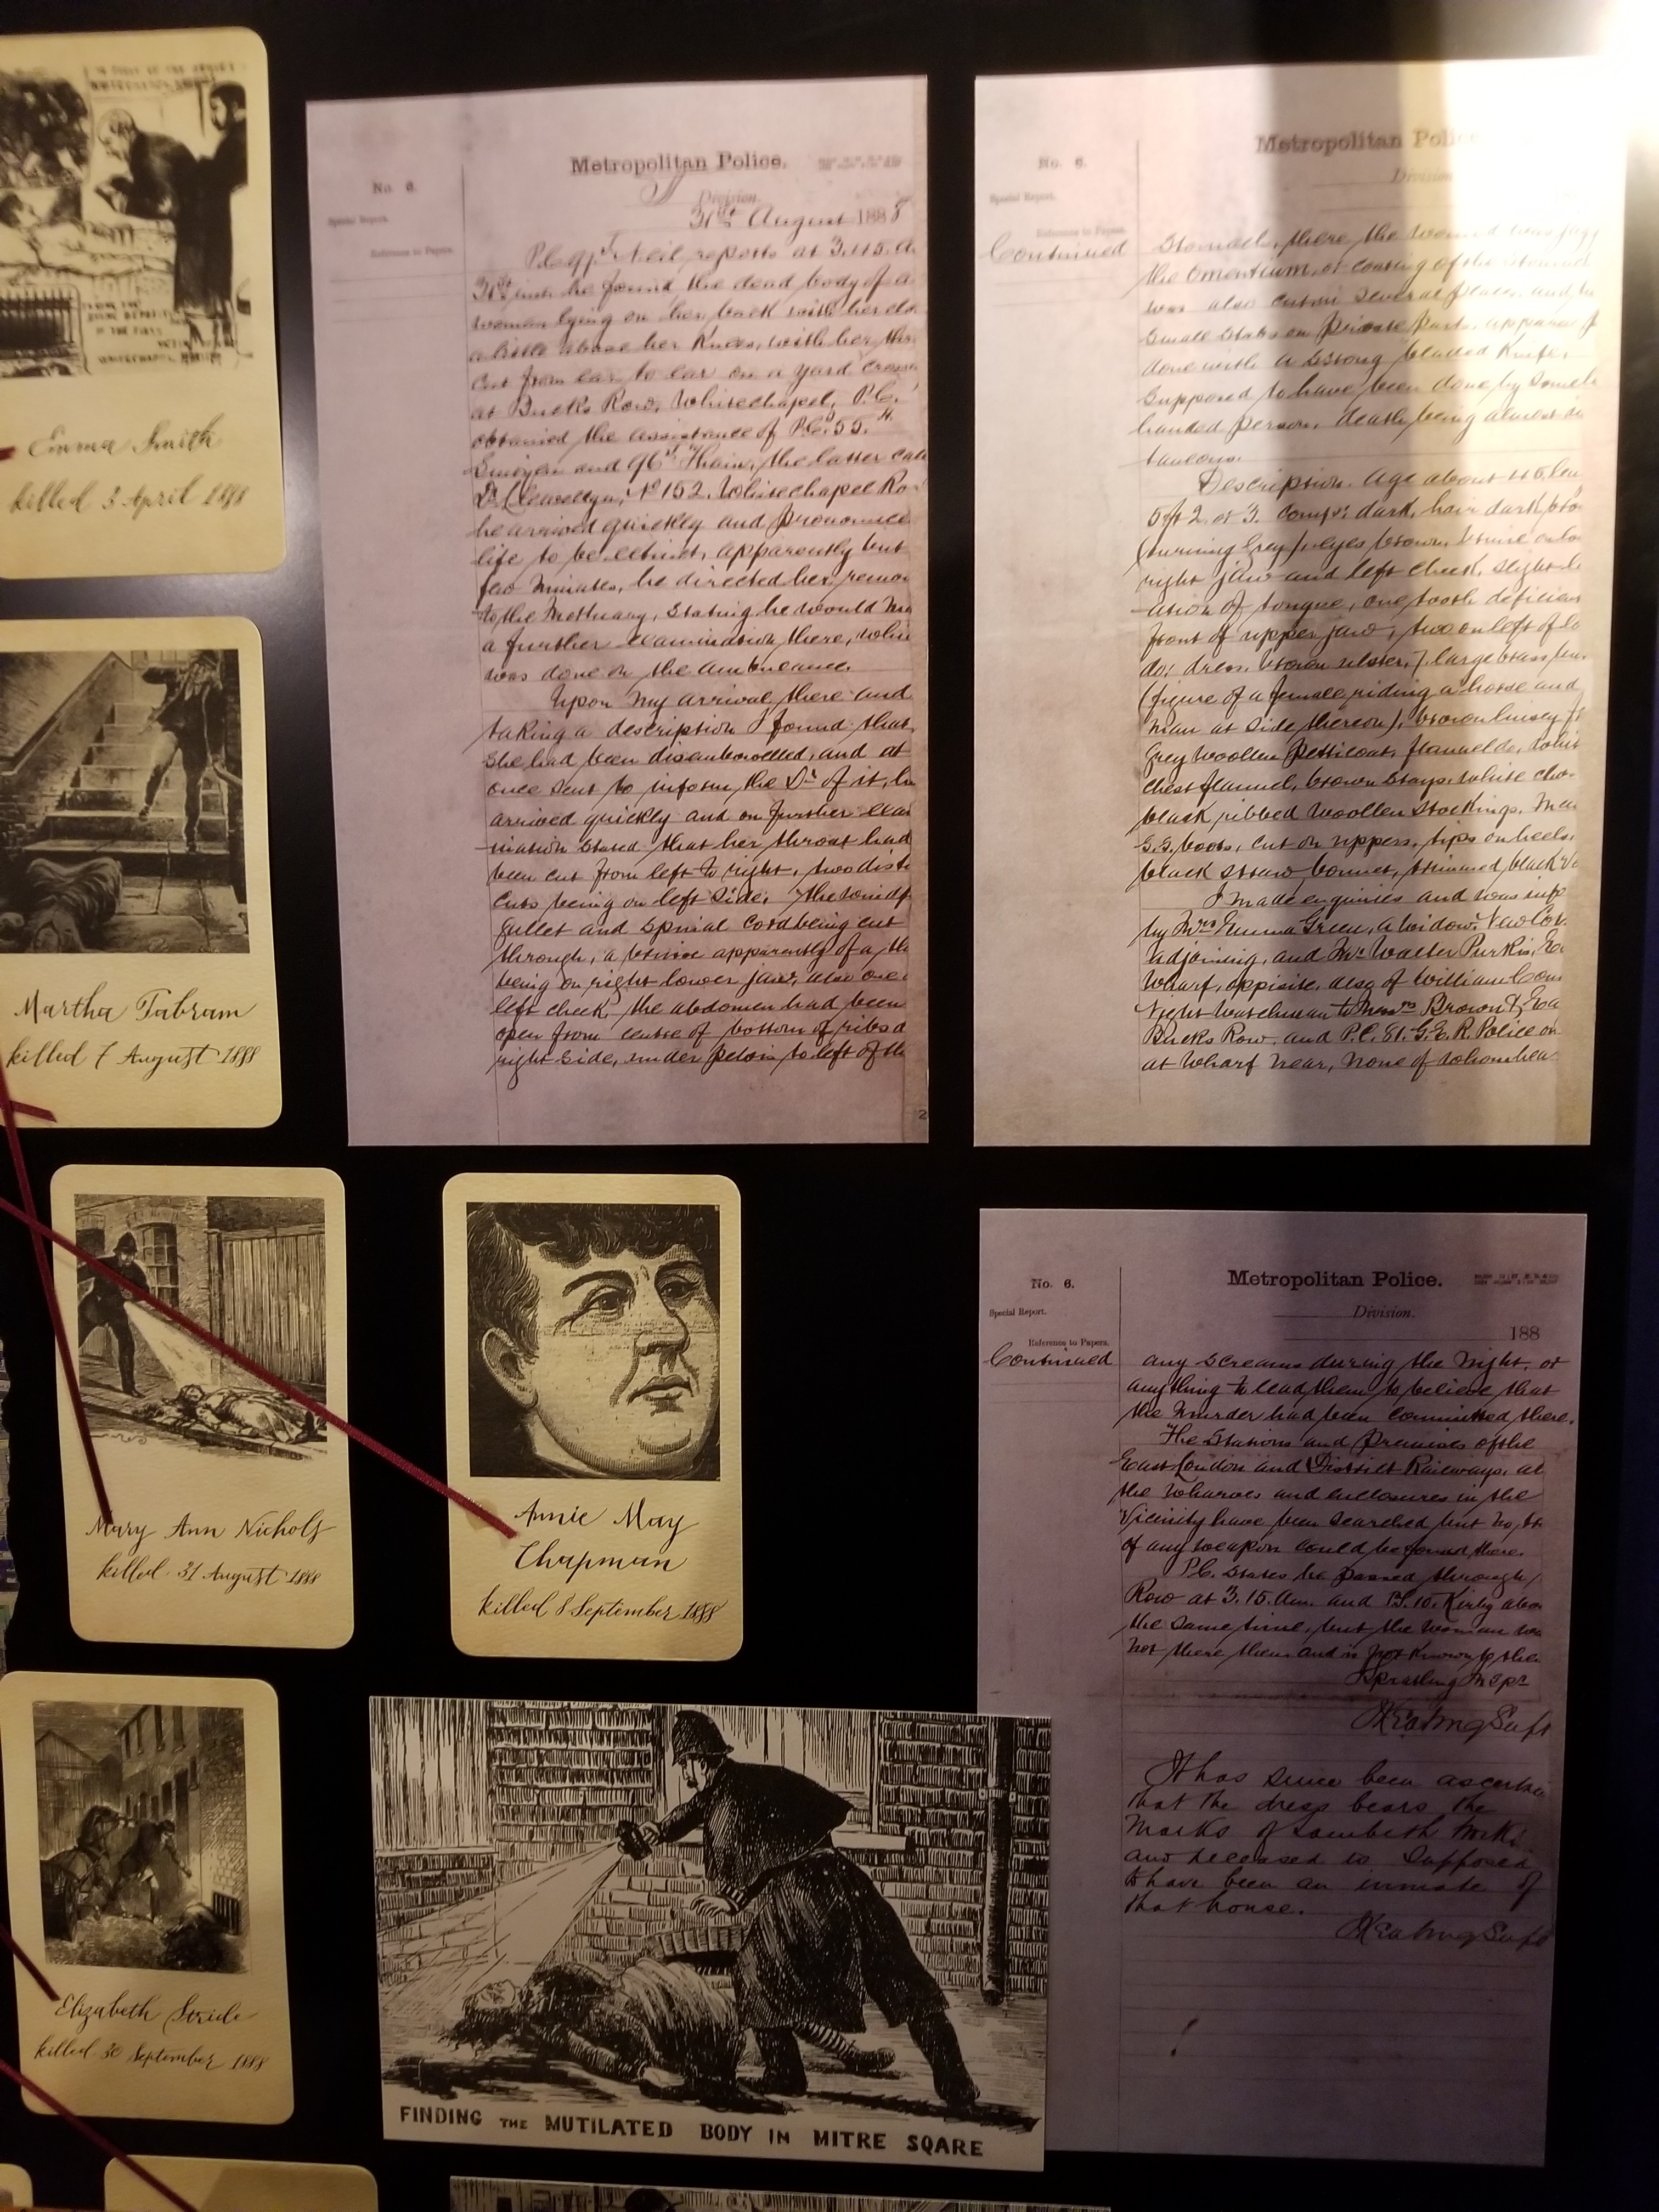 Emma Smith
killed 3 April 1888
Martha Tabram
killed 7 August 1888
Mary Ann Nichols
killed 31 August 1888
Annie May
Chapman
killed 8 September 1888
Elizabeth Stride
killed 30 September 1888
FINDING THE MUTILATED BODY IN MITRE SQARE
No. 6.
Metropolitan Police.
Special Report.
Division.
Reference to Papers.
31st August 1888
P.C. 97J Neil, reports at 3.45. a
31st inst he found the dead body of a
woman lying on her back with her clo
a little above her knees, with her thr
cut from ear to ear on a yard cross
at Bucks Row, Whitechapel, P.C.
obtained the assistance of P.C.s 55. H.
and 96J Thain, the latter call
Dr. Llewellyn, No 152. Whitechapel Ro
he arrived quickly and pronounced
life to be extinct, apparently but
few minutes, he directed her remov
to the Mortuary, stating he would ma
a further examination there, whic
was done on the ambulance.
Upon my arrival there and
taking a description I found that
she had been disembowelled, and at
once sent to inform the Dr of it,
arrived quickly and on further exa
mination stated that her throat had
been cut from left to right, two disti
cuts being on left side, The windp
gullet and spinal cord being cut
through, a bruise apparently of a th
being on right lower jaw, also one
left cheek, the abdomen had been
open from centre of bottom of ribs a
right side, under pelvis to left of th
2
No. 6.
Metropolitan Polic
Special Report.
Division
Reference to Papers.
Continued
Stomach, there the wound was jagg
the omentium, or coating of the stomach
was also cut in several places, and
small stabs on private parts, appare
done with a strong bladed knife,
supposed to have been done by some
handed person, death being almost in
taneous.
Description. age about 45, len
5ft 2. or 3. compx. dark, hair dark bro
(turning Grey), eyes brown, bruise on lo
right jaw and left cheek, slight l
ation of tongue, one tooth deficien
front of upper jaw, two on left of lo
do; dress, brown ulster, 7 large brass
(figure of a female riding a horse and
man at side thereon), brown linsey
Grey woollen petticoat, flannel do, whit
chest flannel, brown stays, white che
black ribbed woollen stockings, man
S.S. boots, cut on uppers, tips on heels,
black straw bonnet, trimmed black
I made enquiries and was info
by Mrs Emma Green, a widow, New Cot
adjoining, and Mr Walter Purkis, E
Wharf, opposite, also of William
Night Watchman to Messrs Brown & Ea
Bucks Row, and P.C. 81. G.E.R. Police on
at Wharf near, none of whom hea
No. 6.
Metropolitan Police.
Special Report.
Division.
188
Reference to Papers.
Continued
any screams during the night, or
anything to lead them to believe that
the murder had been committed there.
The Stations and premises of the
East London and District Railways, al
the wharves and enclosures in the
vicinity have been searched but no tr
of any weapon could be found there.
P.C. states he passed through
Row at 3.15. am. and P.S. 10. Kirby abou
the same time, but the woman wa
not there then and is not known to them
Spratling Inspr
Keating Supt
It has since been ascertain
that the dress bears the
Marks of Lambeth Workh
and deceased is supposed
to have been an inmate of
that house.
Keating Supt